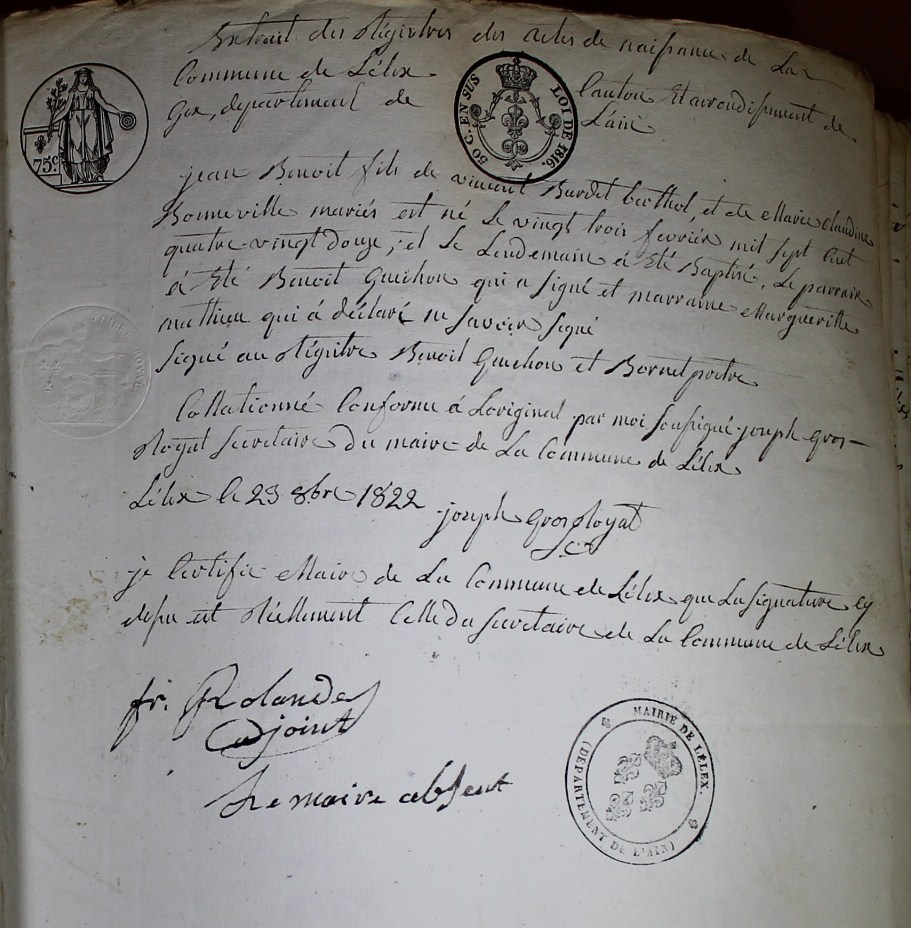 Extrait des Régistres des actes de naissance de La
Commune de Lélex Canton Et arrondissement de
Gex, département de L'ain
75c
50 C. EN SUS
LOI DE 1816.
jean Benoit fils de vincent Burdet berthol, et de Marie claudine
Bonneville mariés est né Le vingt trois fevrier mil sept Cent
quatre-vingt douze; et Le Lendemain à Eté Baptisé. Le parrain
à Eté Benoit Guichon qui a signé et marraine Margueritte
mathieu qui à déclaré ne savoir signé
signé au Régistre Benoit Guichon et Bornet prêtre
Collationné Conforme á Loriginal par moi soussigné joseph gros-
Royat secretaire du maire de La Commune de Lélex
Lélex le 23 8bre 1822 joseph gros Royat
je Certifie Maire de La Commune de Lélex que La signature cy
dessu est Réellement Celle du secretaire de La Commune de Lélex
fr. Rolandez
adjoint
Le maire absent
MAIRIE DE LÉLEX.
(DÉPARTEMENT DE L'AIN)